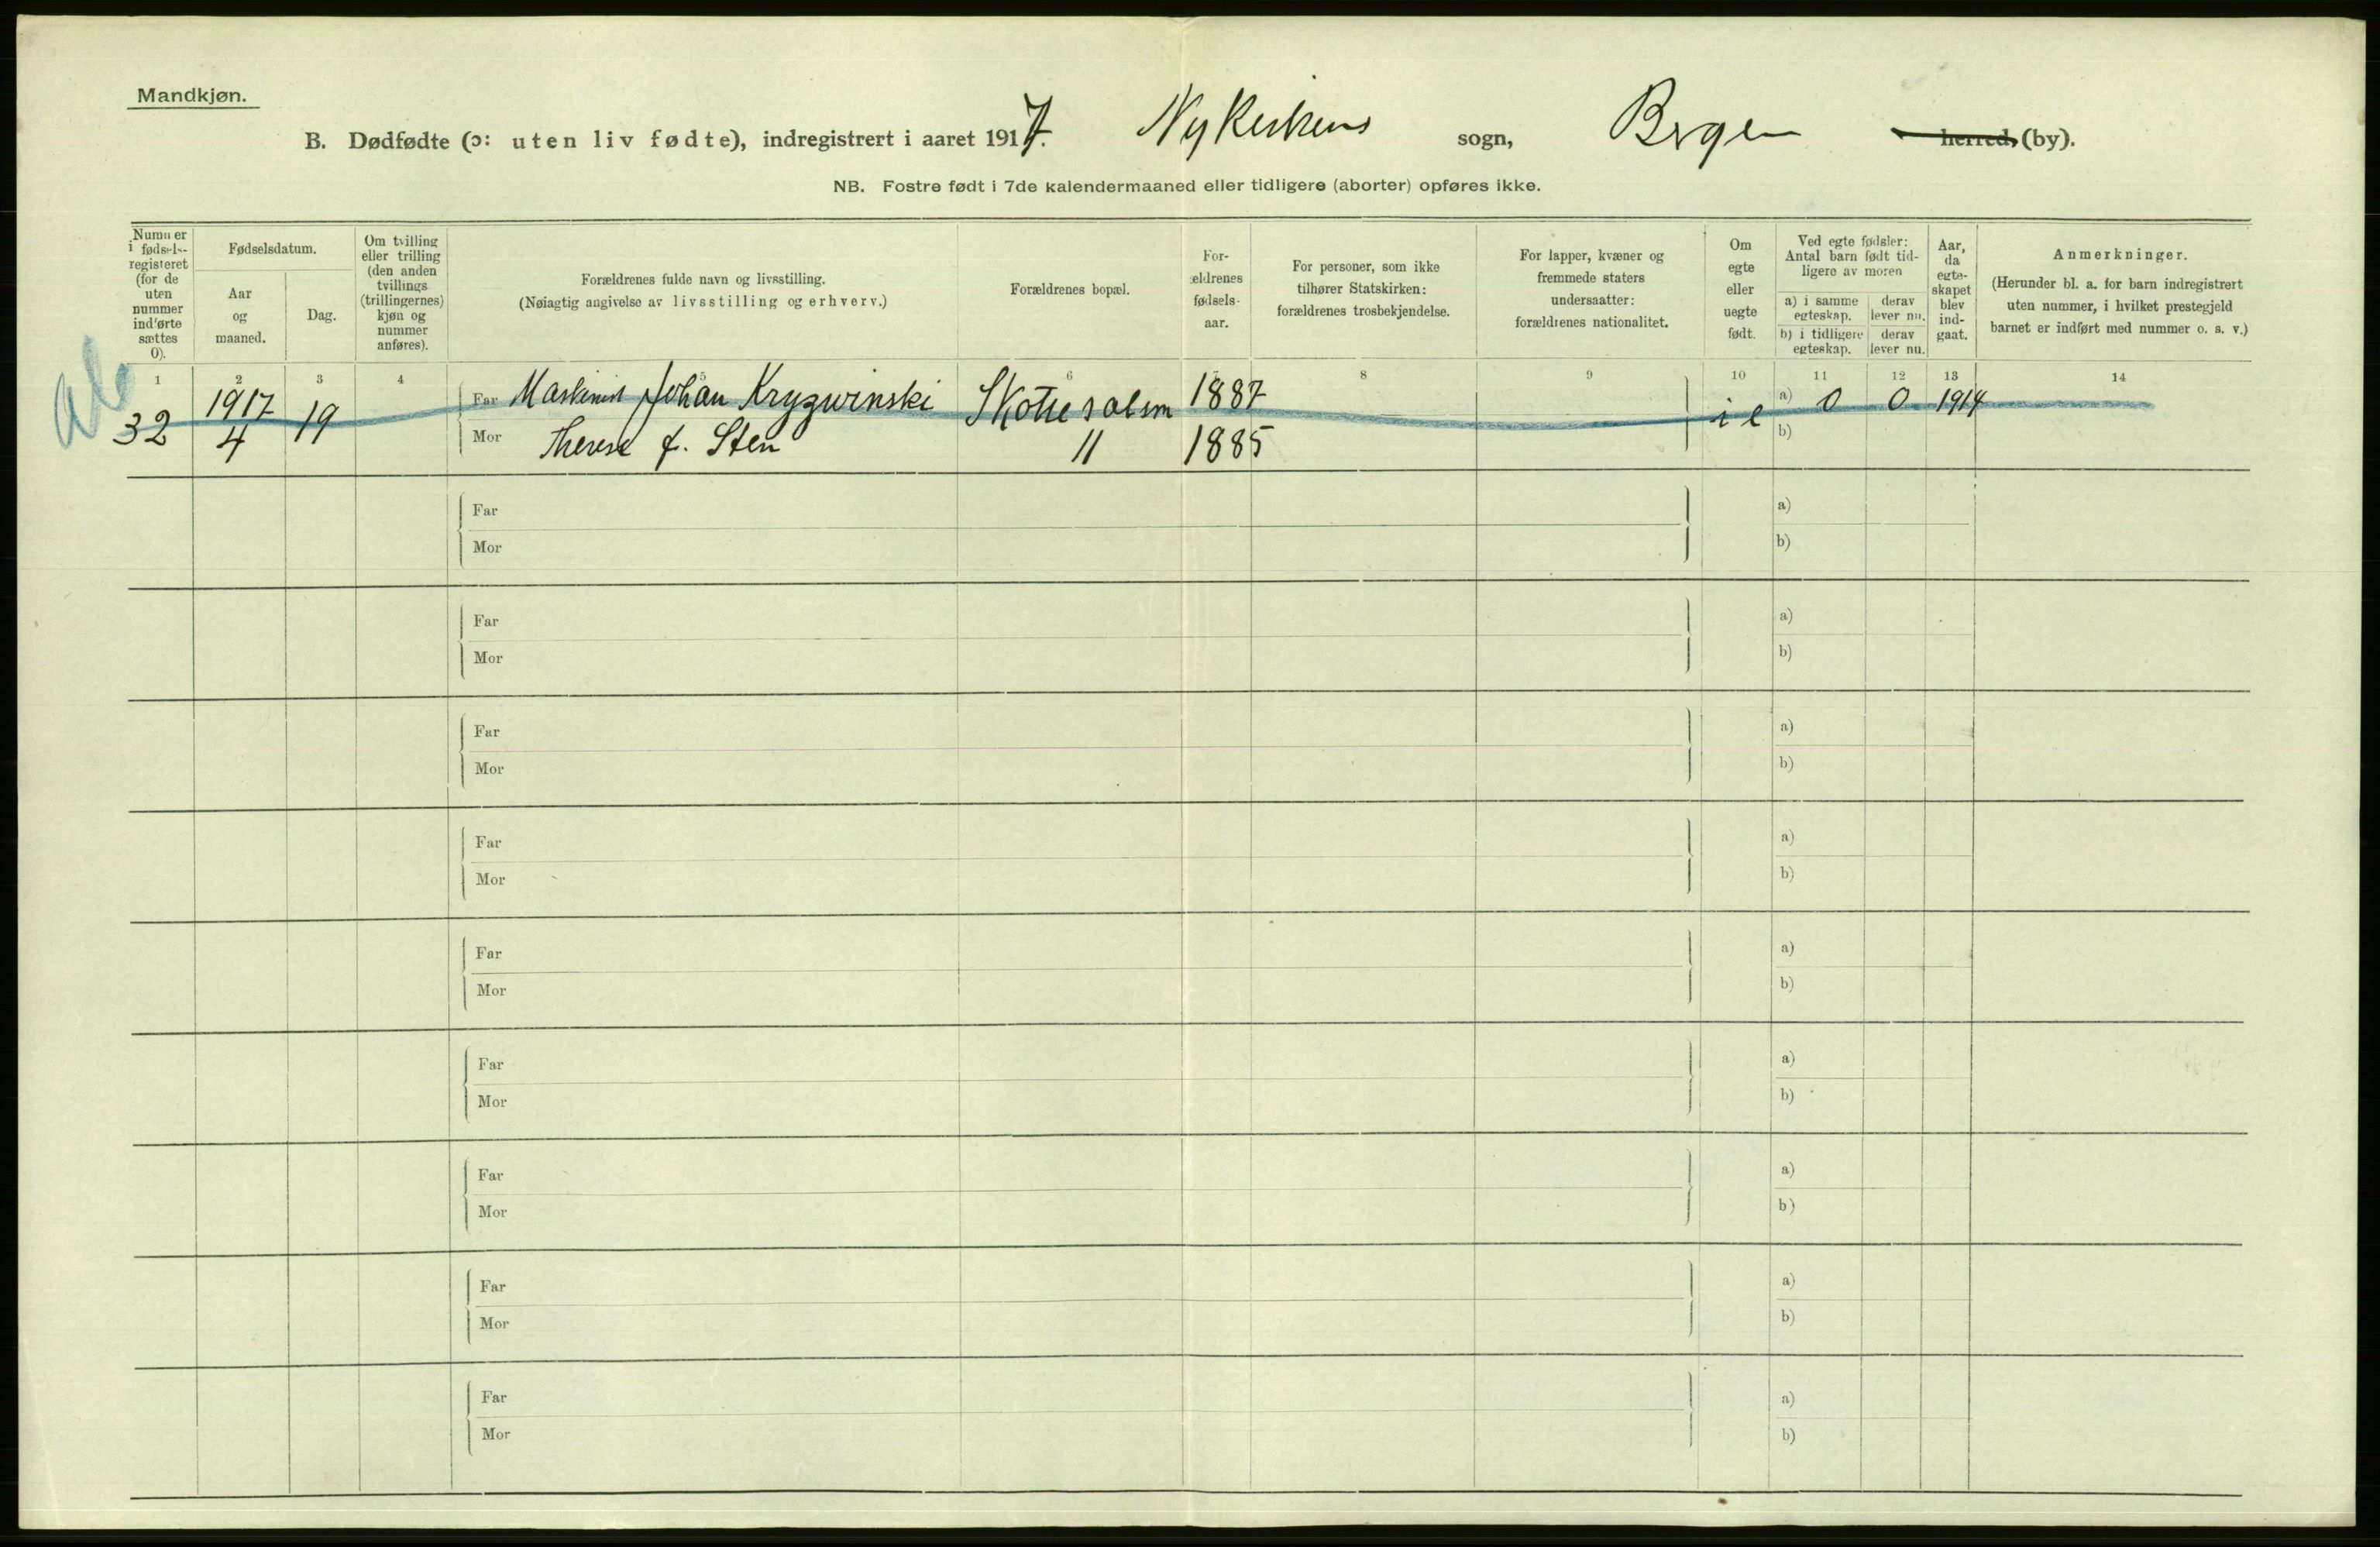 Mandkjøn.
B. Dødfødte (ɔ: uten liv fødte), indregistrert i aaret 1917. Nykirkens sogn, Bergen herred, (by).
NB. Fostre født i 7de kalendermaaned eller tidligere (aborter) opføres ikke.
Nummer i fødsels-registeret (for de uten nummer indførte sættes 0).
Fødselsdatum.
Aar og maaned.
Dag.
Om tvilling eller trilling (den anden tvillings (trillingernes) kjøn og nummer anføres).
Forældrenes fulde navn og livsstilling.
(Nøiagtig angivelse av livsstilling og erhverv.)
Forældrenes bopæl.
For-ældrenes fødsels-aar.
For personer, som ikke tilhører Statskirken: forældrenes trosbekjendelse.
For lapper, kvæner og fremmede staters undersaatter: forældrenes nationalitet.
Om egte eller uegte født.
Ved egte fødsler: Antal barn født tid-ligere av moren
a) i samme egteskap.
derav lever nu.
b) i tidligere egteskap.
derav lever nu.
Aar, da egte-skapet blev ind-gaat.
Anmerkninger.
(Herunder bl. a. for barn indregistrert uten nummer, i hvilket prestegjeld barnet er indført med nummer o. s. v.)
1 2 3 4 5 6 7 8 9 10 11 12 13 14
32 1917 4 19 Far Maskinist Johan Krygwinski 1887 a) 0 0 1914
Mor Therese f. Sten " 1885 b)
Far a)
Mor b)
Far a)
Mor b)
Far a)
Mor b)
Far a)
Mor b)
Far a)
Mor b)
Far a)
Mor b)
Far a)
Mor b)
Far a)
Mor b)
Far a)
Mor b)